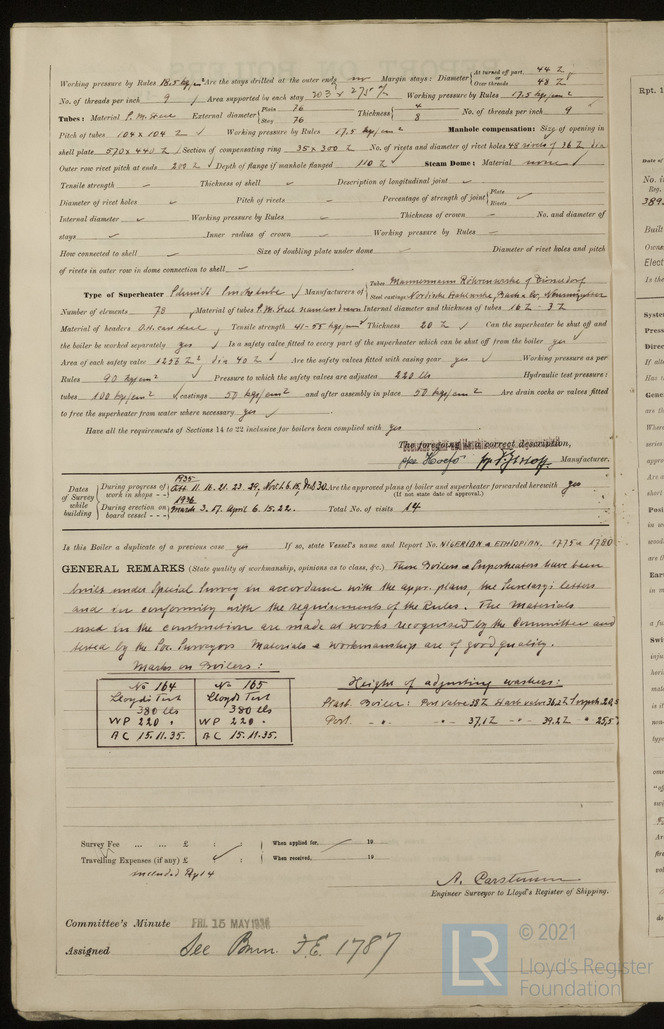 Working pressure by Rules 18.5 kg/cm² Are the stays drilled at the outer ends no Margin stays: Diameter { At turned off part, 44 Z or Over threads 48 Z
No. of threads per inch 9 Area supported by each stay 203 x 275 Working pressure by Rules 17.5 kg/cm²
Tubes: Material P. M. Steel External diameter { Plain 76 Stay 76 Thickness { 4 8 No. of threads per inch 9
Pitch of tubes 104 x 104 Z Working pressure by Rules 17.5 kg/cm² Manhole compensation: Size of opening in
shell plate 570 x 440 Z Section of compensating ring 35 x 300 Z No. of rivets and diameter of rivet holes 48 rivets of 36 Z dia
Outer row rivet pitch at ends 200 Z Depth of flange if manhole flanged 110 Z Steam Dome: Material none
Tensile strength Thickness of shell Description of longitudinal joint
Diameter of rivet holes Pitch of rivets Percentage of strength of joint { Plate Rivets
Internal diameter Working pressure by Rules Thickness of crown No. and diameter of
stays Inner radius of crown Working pressure by Rules
How connected to shell Size of doubling plate under dome Diameter of rivet holes and pitch
of rivets in outer row in dome connection to shell
Type of Superheater Schmidt Manufacturers of { Tubes Mannesmann Röhrenwerke of Düsseldorf Steel castings Nordische Stahlwerke, Neumünster
Number of elements 78 Material of tubes P. M. Steel Internal diameter and thickness of tubes 16 Z - 3 Z
Material of headers O.H. cast steel Tensile strength 41-55 kg/mm² Thickness 20 Z Can the superheater be shut off and
the boiler be worked separately yes Is a safety valve fitted to every part of the superheater which can be shut off from the boiler yes
Area of each safety valve 1256 Z² dia 40 Z Are the safety valves fitted with easing gear yes Working pressure as per
Rules 90 kg/cm² Pressure to which the safety valves are adjusted 220 lbs Hydraulic test pressure:
tubes 100 kg/cm² castings 50 kg/cm² and after assembly in place 50 kg/cm² Are drain cocks or valves fitted
to free the superheater from water where necessary yes
Have all the requirements of Sections 14 to 22 inclusive for boilers been complied with yes
The foregoing is a correct description,
Manufacturer.
Dates of Survey while building { During progress of work in shops - - 1935 Oct 11. 16. 21. 23. 29, Nov 1. 6. 15, Dec 30 Are the approved plans of boiler and superheater forwarded herewith yes
(If not state date of approval.)
During erection on board vessel - - - 1936 March 3. 17. April 6. 15. 22. Total No. of visits 14
Is this Boiler a duplicate of a previous case yes If so, state Vessel's name and Report No. NIGERIAN & ETHIOPIAN. 1775 & 1780
GENERAL REMARKS (State quality of workmanship, opinions as to class, &c.) These Boilers & Superheaters have been
built under Special Survey in accordance with the appr. plans, the Secretary's letters
and in conformity with the requirements of the Rules. The Materials
used in the construction are made at works recognised by the Committee and
tested by the Soc. Surveyors Materials & workmanships are of good quality.
Marks on Boilers:
No 164 No 165
Lloyd's Test Lloyd's Test
380 lbs 380 lbs
WP 220 " WP 220 "
AC 15.11.35. AC 15.11.35.
Height of adjusting washers:
Starb. Boiler: Port valve 38 Z Starb valve 36,2 Z Superh. 20,5
Port. " " " 37,1 Z " " 39,2 Z " 25,5
Survey Fee ... ... £ : : When applied for, 19
Travelling Expenses (if any) £ : : When received, 19
included Rpt 4
A. Carstensen
Engineer Surveyor to Lloyd's Register of Shipping.
Committee's Minute FRI. 15 MAY 1936
Assigned See Brm. F.E. 1787
LR © 2021
Lloyd's Register
Foundation